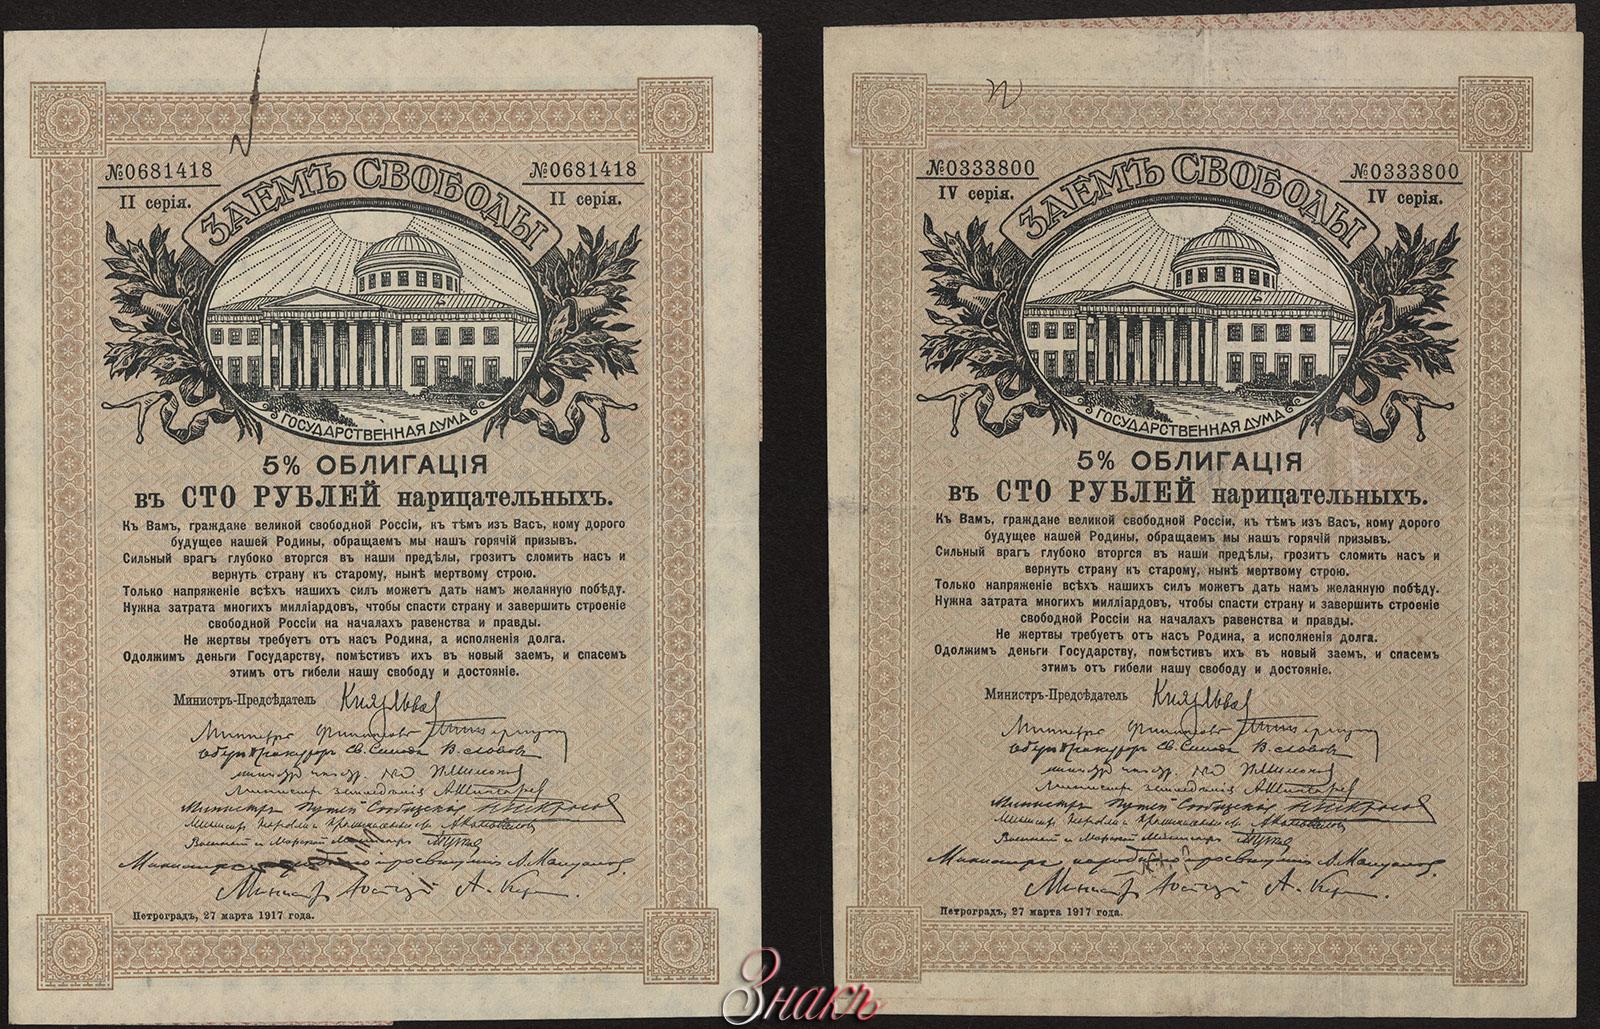 №0681418 №0681418
II серія. II серія.
ЗАЕМЪ СВОБОДЫ
ГОСУДАРСТВЕННАЯ ДУМА
5% ОБЛИГАЦІЯ
въ СТО РУБЛЕЙ нарицательныхъ.
Къ Вамъ, граждане великой свободной Россіи, къ тѣмъ изъ Васъ, кому дорого
будущее нашей Родины, обращаемъ мы нашъ горячій призывъ.
Сильный врагъ глубоко вторгся въ наши предѣлы, грозитъ сломить насъ и
вернуть страну къ старому, нынѣ мертвому строю.
Только напряженіе всѣхъ нашихъ силъ можетъ дать намъ желанную побѣду.
Нужна затрата многихъ милліардовъ, чтобы спасти страну и завершить строеніе
свободной Россіи на началахъ равенства и правды.
Не жертвы требуетъ отъ насъ Родина, а исполненія долга.
Одолжимъ деньги Государству, помѣстивъ ихъ въ новый заемъ, и спасемъ
этимъ отъ гибели нашу свободу и достояніе.
Министръ-Предсѣдатель Князь Львов
Министръ Финансовъ
Оберъ Прокуроръ Св. Синода В. Львовъ
Министръ Земледѣлія А. Шингаревъ
Министръ Путей Сообщенія Н. Некрасовъ
Министръ Торговли и Промышленности А. Коноваловъ
Военный и Морской Министръ А. Гучковъ
Министръ народнаго просвѣщенія А. Мануиловъ.
Министръ Юстиціи А. Керенскій.
Петроградъ, 27 марта 1917 года.
№0333800 №0333800
IV серія. IV серія.
ЗАЕМЪ СВОБОДЫ
ГОСУДАРСТВЕННАЯ ДУМА
5% ОБЛИГАЦІЯ
въ СТО РУБЛЕЙ нарицательныхъ.
Къ Вамъ, граждане великой свободной Россіи, къ тѣмъ изъ Васъ, кому дорого
будущее нашей Родины, обращаемъ мы нашъ горячій призывъ.
Сильный врагъ глубоко вторгся въ наши предѣлы, грозитъ сломить насъ и
вернуть страну къ старому, нынѣ мертвому строю.
Только напряженіе всѣхъ нашихъ силъ можетъ дать намъ желанную побѣду.
Нужна затрата многихъ милліардовъ, чтобы спасти страну и завершить строеніе
свободной Россіи на началахъ равенства и правды.
Не жертвы требуетъ отъ насъ Родина, а исполненія долга.
Одолжимъ деньги Государству, помѣстивъ ихъ въ новый заемъ, и спасемъ
этимъ отъ гибели нашу свободу и достояніе.
Министръ-Предсѣдатель Князь Львов
Министръ Финансовъ
Оберъ Прокуроръ Св. Синода В. Львовъ
Министръ Земледѣлія А. Шингаревъ
Министръ Путей Сообщенія Н. Некрасовъ
Министръ Торговли и Промышленности А. Коноваловъ
Военный и Морской Министръ А. Гучковъ
Министръ народнаго просвѣщенія А. Мануиловъ.
Министръ Юстиціи А. Керенскій.
Петроградъ, 27 марта 1917 года.
Знакъ